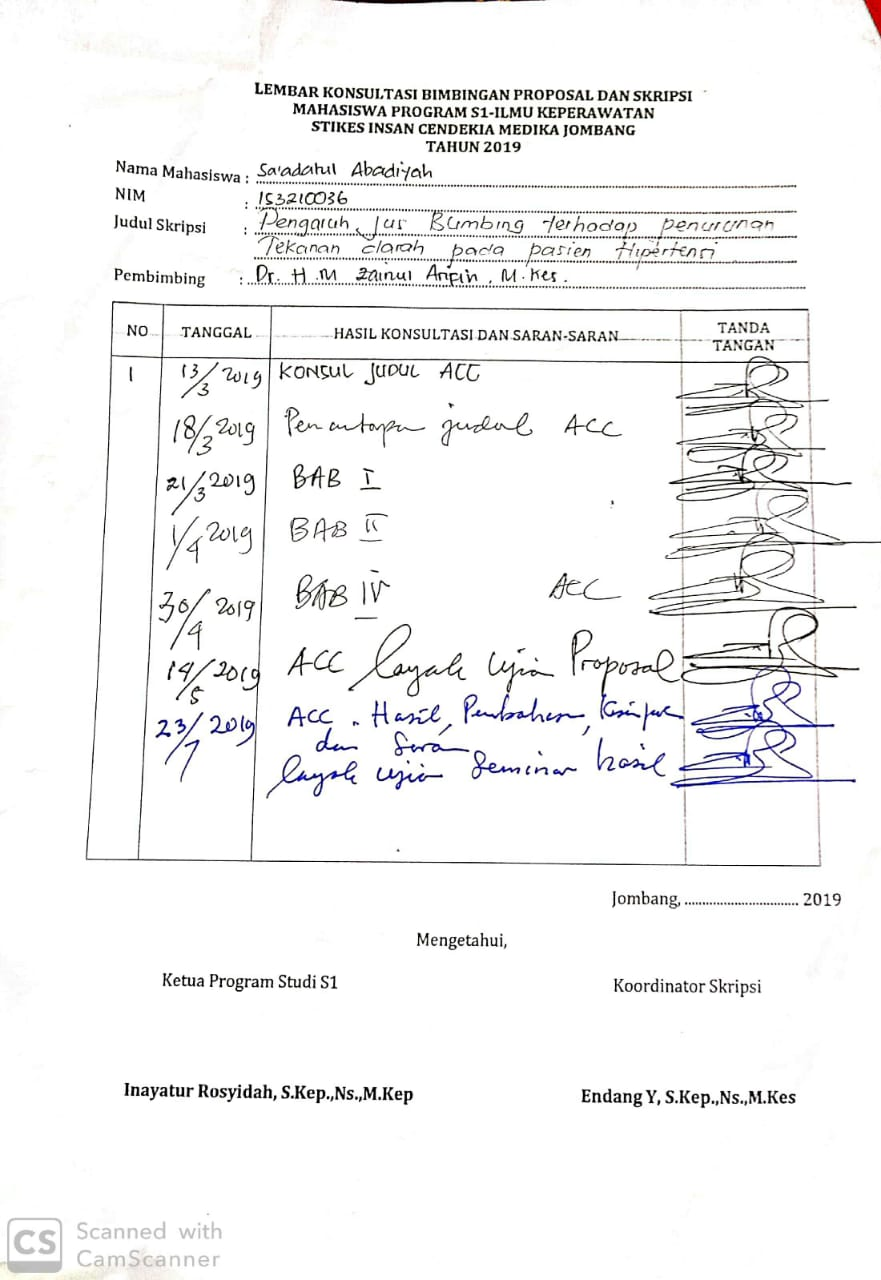 LEMBAR KONSULTASI BIMBINGAN PROPOSAL DAN SKRIPSI
MAHASISWA PROGRAM S1-ILMU KEPERAWATAN
STIKES INSAN CENDEKIA MEDIKA JOMBANG
TAHUN 2019
Nama Mahasiswa : Sa'adatul Abadiyah
NIM : 153210036
Judul Skripsi : Pengaruh Jus Blimbing terhadap penurunan
Tekanan darah pada pasien Hipertensi
Pembimbing : Dr. H.M Zainul Arifin, M.Kes.
NO TANGGAL HASIL KONSULTASI DAN SARAN-SARAN TANDA TANGAN
1 13/3 2019 KONSUL JUDUL ACC
18/3 2019 judul ACC
21/3 2019 BAB I
1/4 2019 BAB II
30/4 2019 BAB IV ACC
14/5 2019 ACC layak ujian Proposal
23/7 2019 ACC. Hasil, Pembahasan,
dan Saran
layak ujian Seminar hasil
Jombang, .............................. 2019
Mengetahui,
Ketua Program Studi S1 Koordinator Skripsi
Inayatur Rosyidah, S.Kep.,Ns.,M.Kep Endang Y, S.Kep.,Ns.,M.Kes
CS Scanned with
CamScanner